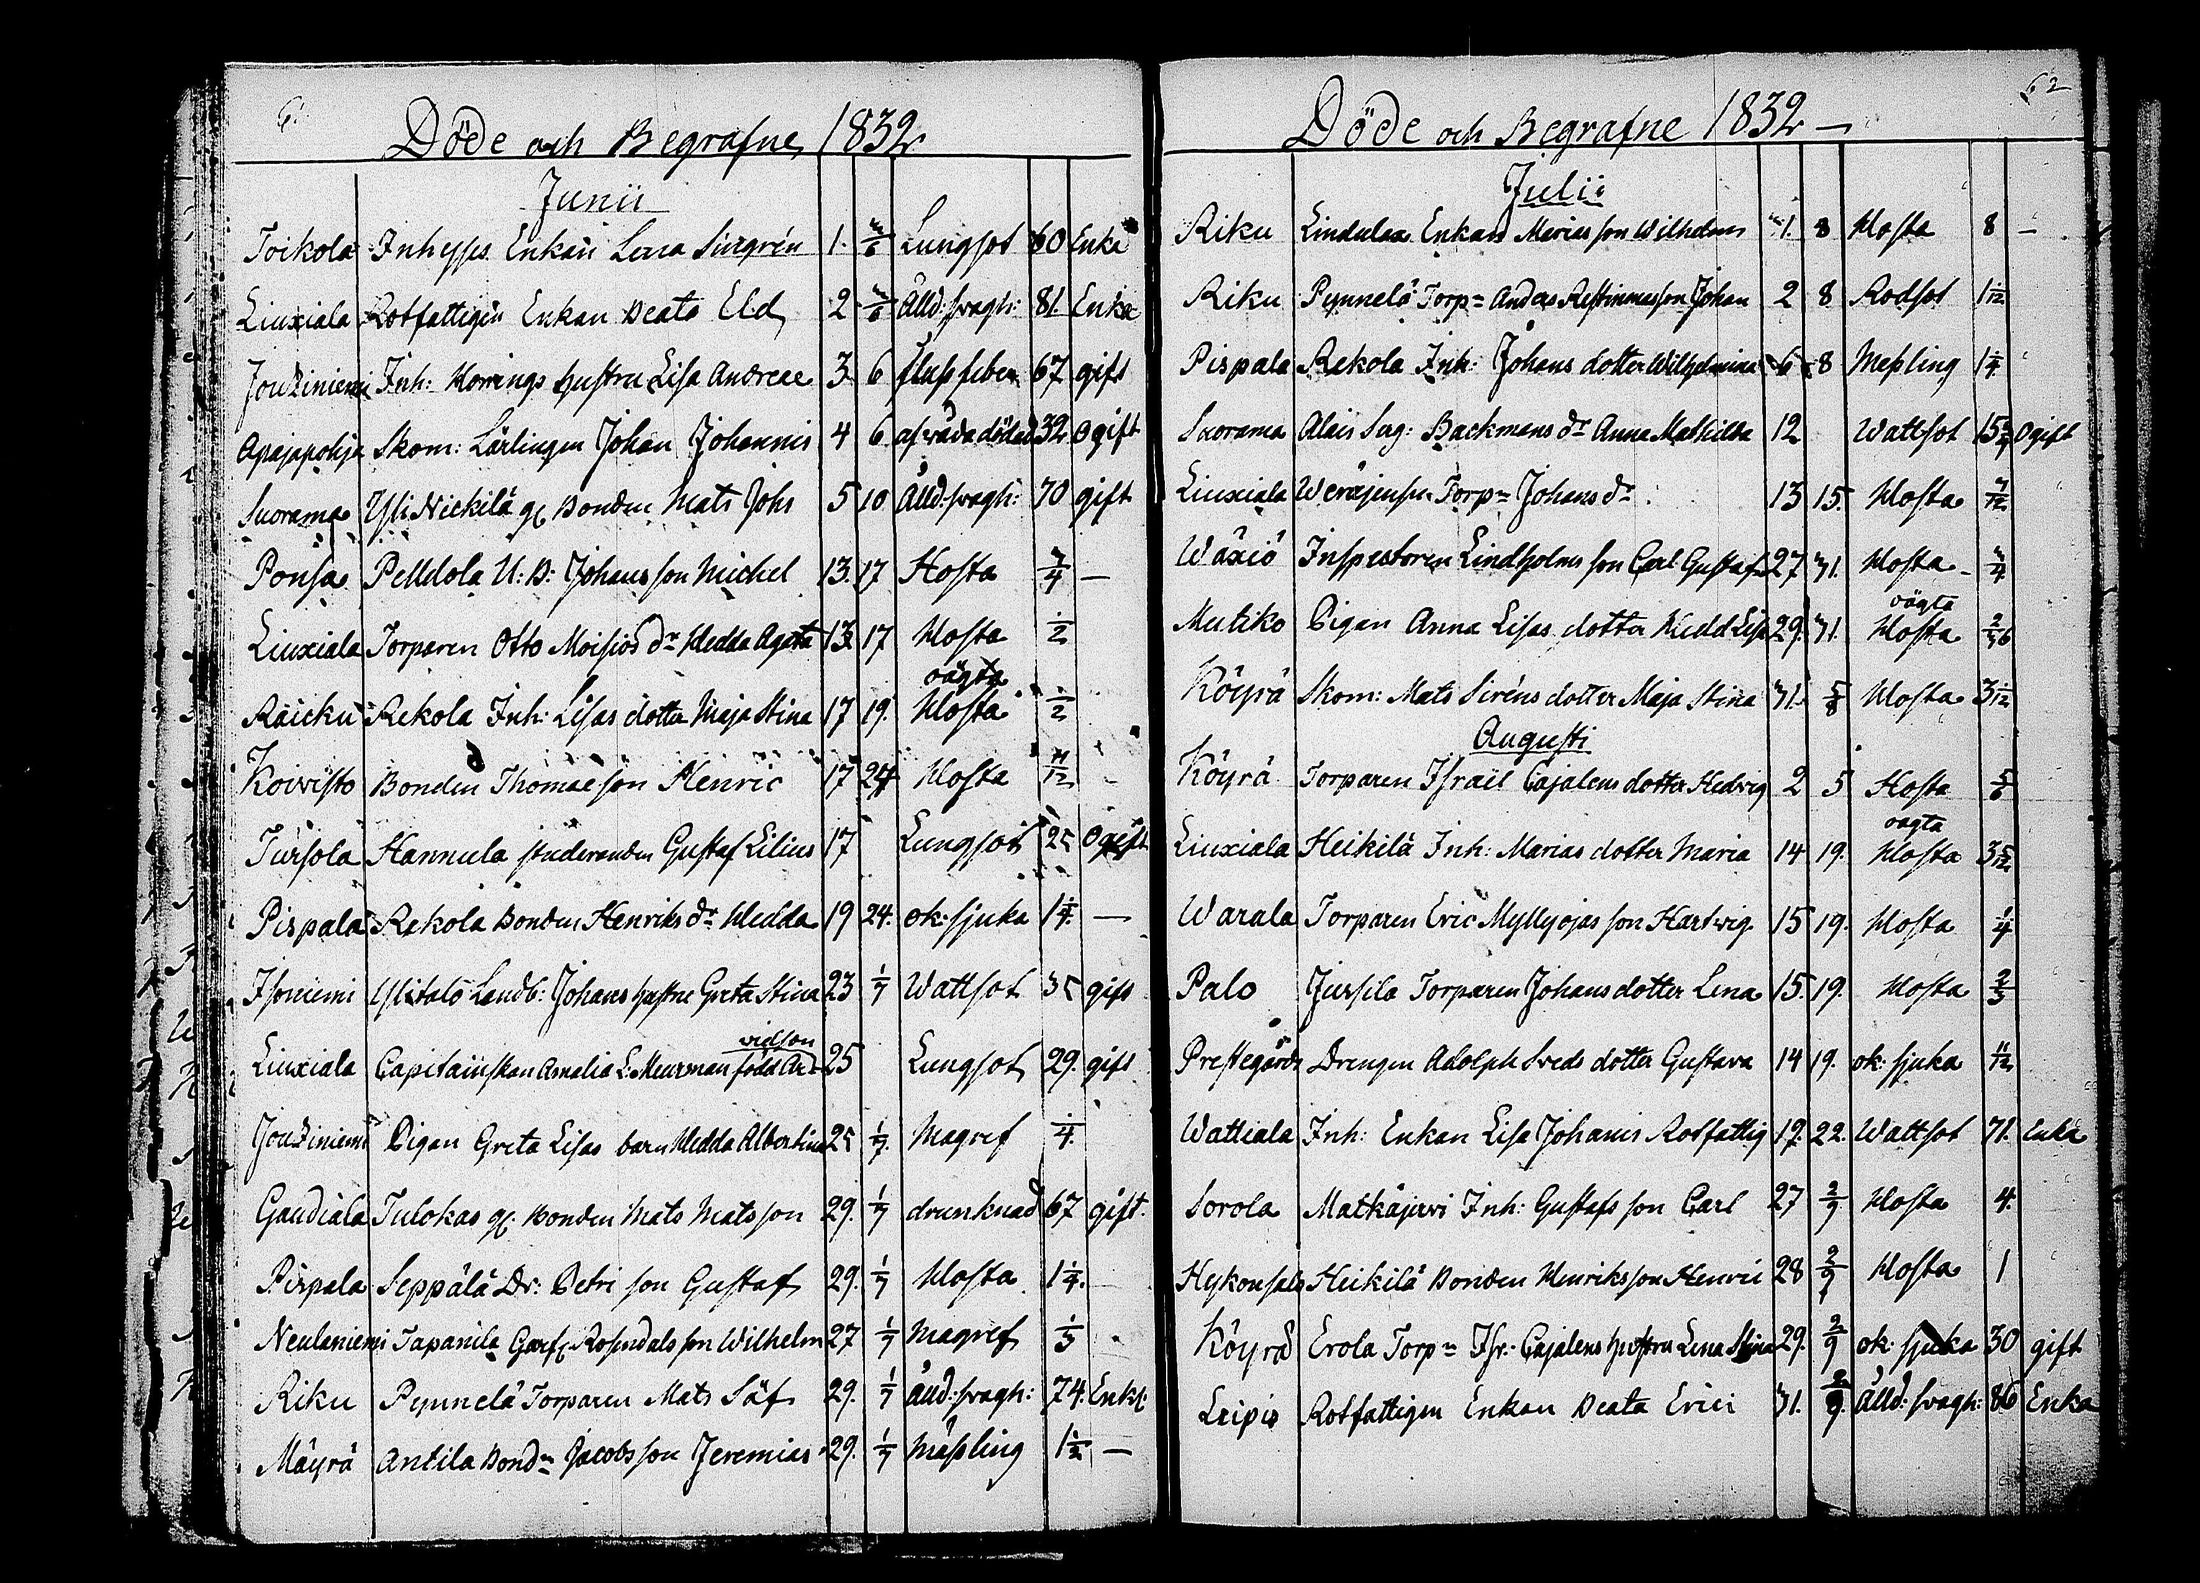 Döde och Begrafne 1832
Junii
Toikola Inhyses Enkan Lena Siregrén 1. 3/6 Lungsot 60 Enka
Liuxiala Rotfattigen Enkan Beata Eld 2 3/6 Ålld: svagh: 81. Enka
Jouziniemi Inh: Hornings hustru Lisa Andreae 3 6 flussfeber 67 gift
Apajapohja Skom: Lärlingen Johan Johannis 4 6 af våda dödad 32 Ogift
Suorama Yli Nickilä gl Bonden Mats Johs 5 10 Ålld: svagh: 70 gift
Ponsa Pelldola U: B: Johans son Michel 13. 17 Hosta 3/4 —
Liuxiala Torparen Otto Moisios dr Hedda Agata 13. 17 Hosta 1/2
Räicku Rekola Inh: Lisas dotter Maja Stina 17 19. oägta Hosta 1/2
Koivisto Bonden Thomae son Henric 17 24 Hosta 11/12
Tursola Hannula studeranden Gustaf Lilius 17 Lungsot 25 Ogift
Pispala Rekola Bonden Henriks dr Hedda 19 24. ok: sjuka 1 1/4. —
Isoniemi Ylitalo Landb: Johans hustru Greta Stina 23 1/7 Wattsot 35 gift
Liuxiala Capitainskan Amalia L. Meurman född Ar- vidson 25 Lungsot 29. gift
Jouziniemi Pigan Greta Lisas barn Hedda Albertina 25 1/7. Magref 1/4.
Gaudiala Tulokas gl. Bonden Mats Matsson 29. 1/7 drunknad 67 gift.
Pispala Seppälä Dr: Petri son Gustaf 29. 1/7 Hosta 1 1/4.
Neulaniemi Tapanila Rosendals son Wilhelm 27 1/7 Magref 1/3
Riku Pynnelä Torparen Mats Säf 29. 1/7 Ålld: svagh: 74. Enkl:
Mäyrä Antila Bondn Jacobs son Jeremias 29. 1/7 Mässling 1 1/2 —
62
Döde och Begrafne 1832 —
Julii
Riku Lindulax Enkans Marias son Wilhelm 1. 8 Hosta 8 —
Riku Pynnelä Torpn Anders son Johan 2 8 Rodsot 1 1/12
Pispala Rekola Inh: Johans dotter Wilhelmina 6 8 Messling 1 1/4
Suorama Alais Serg: Backmans dr Anna Mathilda 12 Wattsot 15 Ogift
Liuxiala Torpn Johans dr 13 15. Hosta 7/12
Wäxiö Inspectoren Lindholms son Carl Gustaf 27 31. Hosta 3/4
Mutiko Pigan Anna Lisas dotter Hedd Lisa 29. 31. oägta Hosta
Köyrä Skom: Mats Siréns dotter Maja Stina 31. 5/8 Hosta 3 1/12
Augusti
Köyrä Torparen Israel Cajalens dotter Hedvig 2 5 Hosta 5/6
Liuxiala Heikilä Inh: Marias dotter Maria 14 19. oägta Hosta 3 5/12
Warala Torparen Eric Myllyojas son Hartvig 15 19. Hosta 1/4
Palo Jussila Torparen Johans dotter Lena 15. 19. Hosta 2/3
Prestegårds Drengen Adolph Sveds dotter Gustava 14 19. ok: sjuka 11/12
Wattiala Inh: Enkan Lisa Johanis Rotfattig 17. 22. Wattsot 71. Enka
Sorola Matkajärvi Inh: Gustafs son Carl 27 2/9 Hosta 4.
Heikilä Bonden Henriks son Henric 28 2/9 Hosta 1
Köyrä Erola Torpn Isr: Cajalens hustru Lena Stina 29. 2/9 ok: sjuka 30 gift
Leipis Rotfattigen Enkan Beata Erici 31. 2/9. Ålld: svagh: 86 Enka